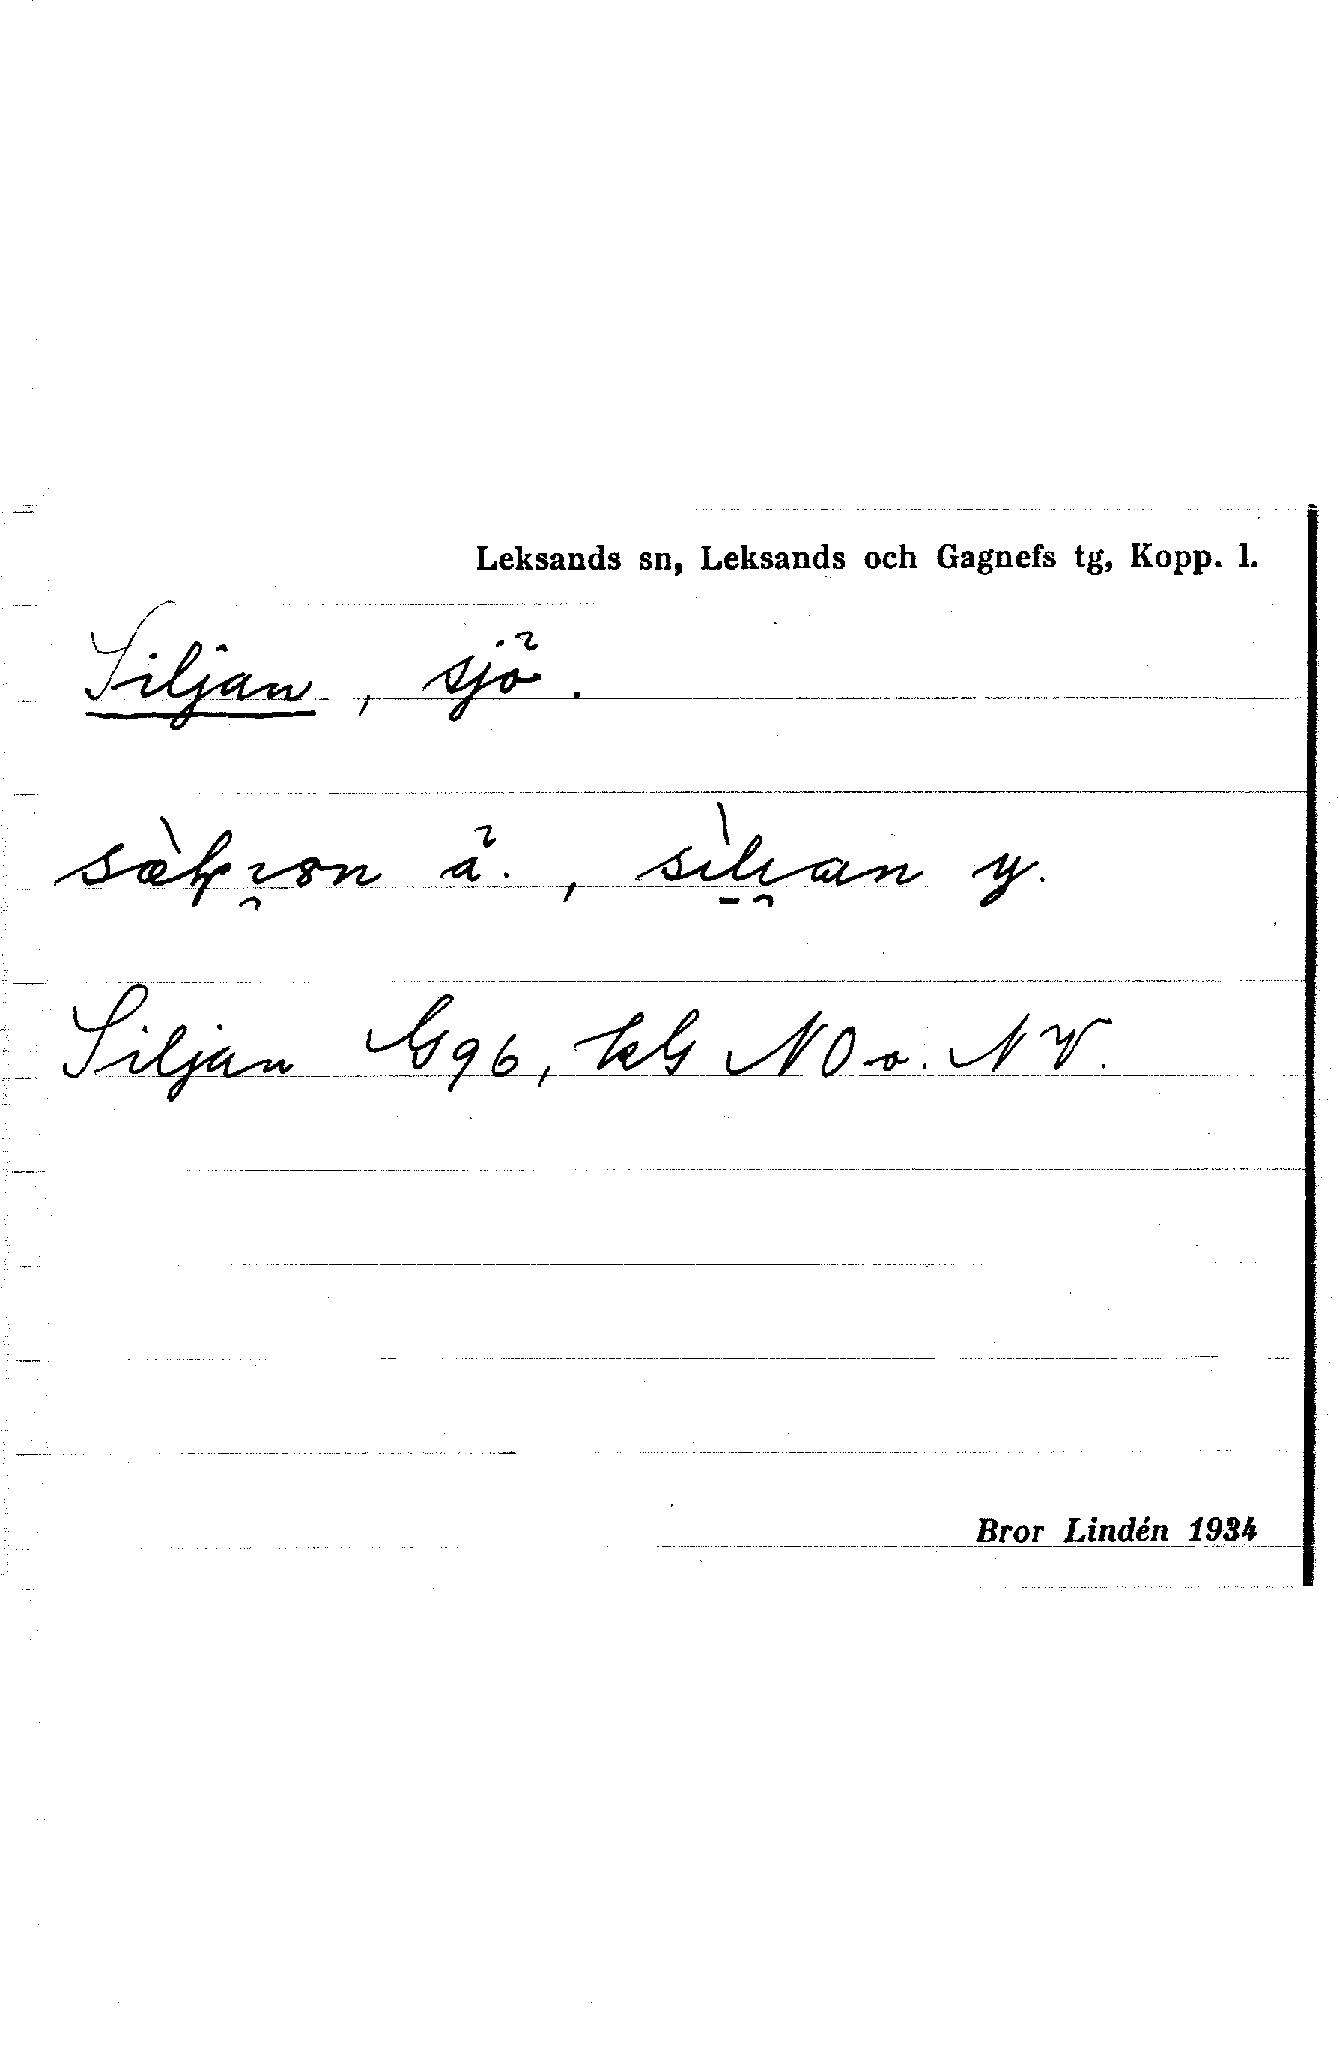 Leksands sn, Leksands och Gagnefs tg, Kopp. l.
Siljan, sjö.
ä., y.
Siljan G96, kG NO o. NV.
Bror Lindén 1934